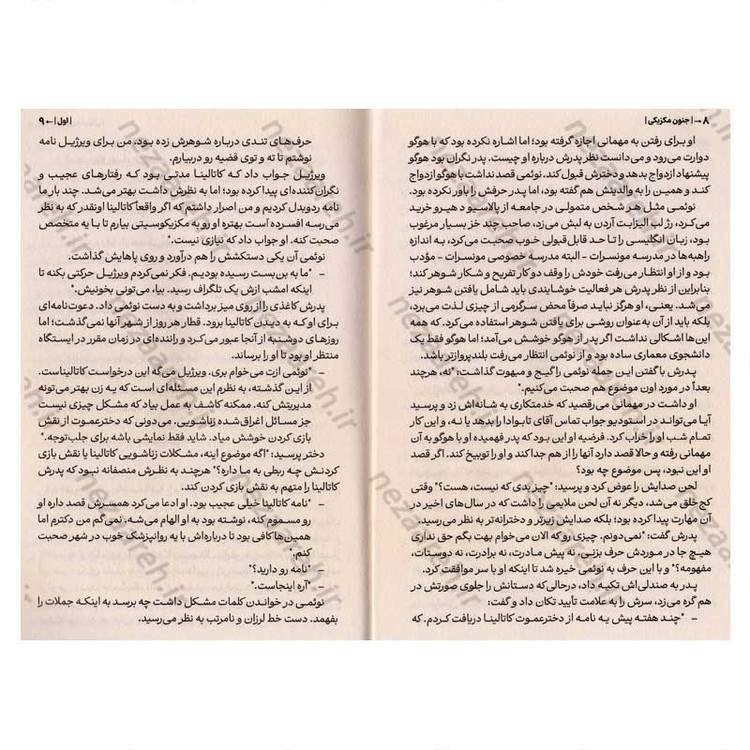 ۸ → | جنون مکزیکی |
او برای رفتن به مهمانی اجازه گرفته بود؛ اما اشاره نکرده بود که با هوگو
دوارت می‌رود و می‌دانست نظر پدرش درباره او چیست. پدر نگران بود هوگو
پیشنهاد ازدواج بدهد و دخترش قبول کند. نوئمی قصد نداشت با هوگو ازدواج
کند و همین را به والدینش هم گفته بود، اما پدر حرفش را باور نکرده بود.
نوئمی مثل هر شخص متمولی در جامعه از پالاسیو د هیرو خرید
می‌کرد، رژ لب الیزابت آردن به لبش می‌زد، صاحب چند خز بسیار مرغوب
بود، زبان انگلیسی را تا حد قابل‌قبولی خوب صحبت می‌کرد، به اندازه
راهبه‌ها در مدرسه مونسرات - البته مدرسه خصوصی مونسرات - مؤدب
بود و از او انتظار می‌رفت خودش را وقف دو کار تفریح و شکار شوهر کند؛
بنابراین از نظر پدرش هر فعالیت خوشایندی باید شامل یافتن شوهر نیز
می‌شد. یعنی، او هرگز نباید صرفاً محض سرگرمی از چیزی لذت می‌برد،
بلکه باید از آن به‌عنوان روشی برای یافتن شوهر استفاده می‌کرد. که همه
این‌ها اشکالی نداشت اگر پدر از هوگو خوشش می‌آمد؛ اما هوگو فقط یک
دانشجوی معماری ساده بود و از نوئمی انتظار می‌رفت بلندپروازتر باشد.
پدرش با گفتن این جمله نوئمی را گیج و مبهوت گذاشت: "نه، هرچند
بعداً در مورد اون موضوع هم صحبت می‌کنیم."
او داشت در مهمانی می‌رقصید که خدمتکاری به شانه‌اش زد و پرسید
آیا می‌تواند در استودیو جواب تماس آقای تابوادا را بدهد یا نه، و این کار
تمام شب او را خراب کرد. فرضیه او این بود که پدر فهمیده او با هوگو به آن
مهمانی رفته و حالا قصد دارد آنها را از هم جدا کند و او را توبیخ کند. اگر قصد
او این نبود، پس موضوع چه بود؟
لحن صدایش را عوض کرد و پرسید: "چیز بدی که نیست، هست؟" وقتی
کج‌خلق می‌شد، دیگر نه آن لحن ملایمی را داشت که در سال‌های اخیر در
آن مهارت پیدا کرده بود؛ بلکه صدایش زیرتر و دخترانه‌تر به نظر می‌رسید.
پدرش گفت: "نمی‌دونم. چیزی رو که الان می‌خوام بهت بگم حق نداری
هیچ جا در موردش حرف بزنی. نه پیش مادرت، نه برادرت، نه دوستات،
مفهومه؟" و با این حرف به نوئمی خیره شد تا اینکه او با سر موافقت کرد.
پدر به صندلی‌اش تکیه داد، درحالی‌که دستانش را جلوی صورتش در
هم گره می‌زد، سرش را به علامت تأیید تکان داد و گفت:
- "چند هفته پیش یه نامه از دخترعموت کاتالینا دریافت کردم. که
| اول | ← ۹
حرف‌های تندی درباره شوهرش زده بود. من برای ویرژیل نامه
نوشتم تا ته و توی قضیه رو دربیارم.
ویرژیل جواب داد که کاتالینا مدتی بود که رفتارهای عجیب و
نگران‌کننده‌ای پیدا کرده بود؛ اما به نظرش داشت بهتر می‌شد. چند بار ما
نامه ردوبدل کردیم و من اصرار داشتم که اگر واقعاً کاتالینا اونقدر که به نظر
می‌رسه افسرده است بهتره او رو به مکزیکوسیتی بیارم تا با یه متخصص
صحبت کنه. او جواب داد که نیازی نیست."
نوئمی آن یکی دستکشش را هم درآورد و روی پاهایش گذاشت.
- "ما به بن‌بست رسیده بودیم. فکر نمی‌کردم ویرژیل حرکتی بکنه تا
اینکه امشب ازش یک تلگراف رسید. بیا، می‌تونی بخونیش."
پدرش کاغذی را از روی میز برداشت و به دست نوئمی داد. دعوت‌نامه‌ای
برای او که به دیدن کاتالینا برود. قطار هر روز از شهر آنها نمی‌گذشت؛ اما
روزهای دوشنبه از آنجا عبور می‌کرد و راننده‌ای در زمان مقرر در ایستگاه
منتظر او بود تا او را برساند.
- "نوئمی ازت می‌خوام بری. ویرژیل می‌گه این درخواست کاتالیناست.
از این گذشته، به نظرم این مسئله‌ای است که یه زن بهتر می‌تونه
مدیریتش کنه. ممکنه کاشف به عمل بیاد که مشکل چیزی نیست
جز مسائل اغراق‌شده‌ی زناشویی. می‌دونی که دخترعموت از نقش
بازی کردن خوشش میاد. شاید فقط نمایشی باشه برای جلب‌توجه."
دختر پرسید: "اگه موضوع اینه، مشکلات زناشویی کاتالینا یا نقش بازی
کردنش چه ربطی به ما داره؟" هرچند به نظرش منصفانه نبود که پدرش
کاتالینا را متهم به نقش بازی کردن کند.
- "نامه کاتالینا خیلی عجیب بود. او ادعا می‌کرد همسرش قصد داره او
رو مسموم کنه، نوشته بود به او الهام می‌شه. نمی‌گم من دکترم اما
همین‌ها کافی بود تا درباره‌اش با یه روانپزشک خوب در شهر صحبت
کنم."
- "نامه رو دارید؟"
- "آره اینجاست."
نوئمی در خواندن کلمات مشکل داشت چه برسد به اینکه جملات را
بفهمد. دست خط لرزان و نامرتب به نظر می‌رسید.